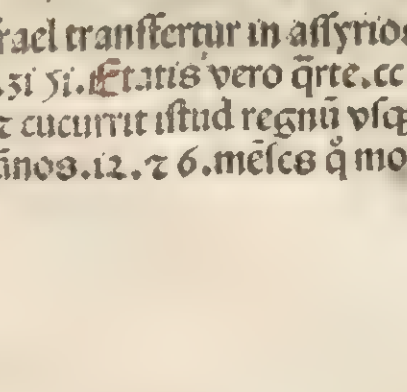 rael transfertur in assyrios
.31 51. Etatis vero q̄rte.cc
⁊ cucurrit istud regnū vsq
ānos.12.⁊ 6.mēses q̊ mo